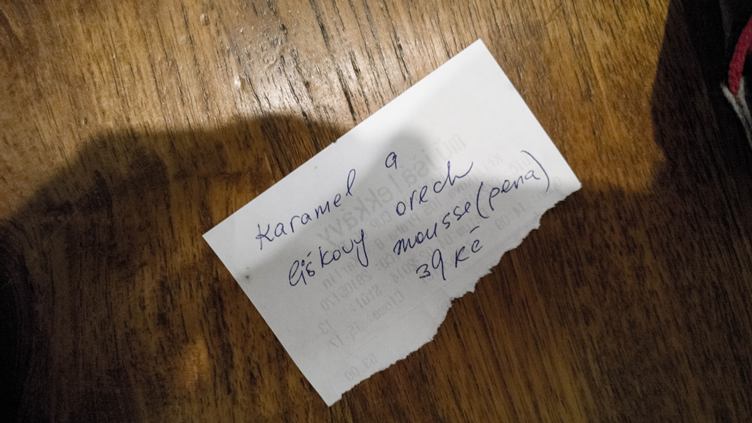 Karamel a
líškový orech
mousse (pena)
39 Kč